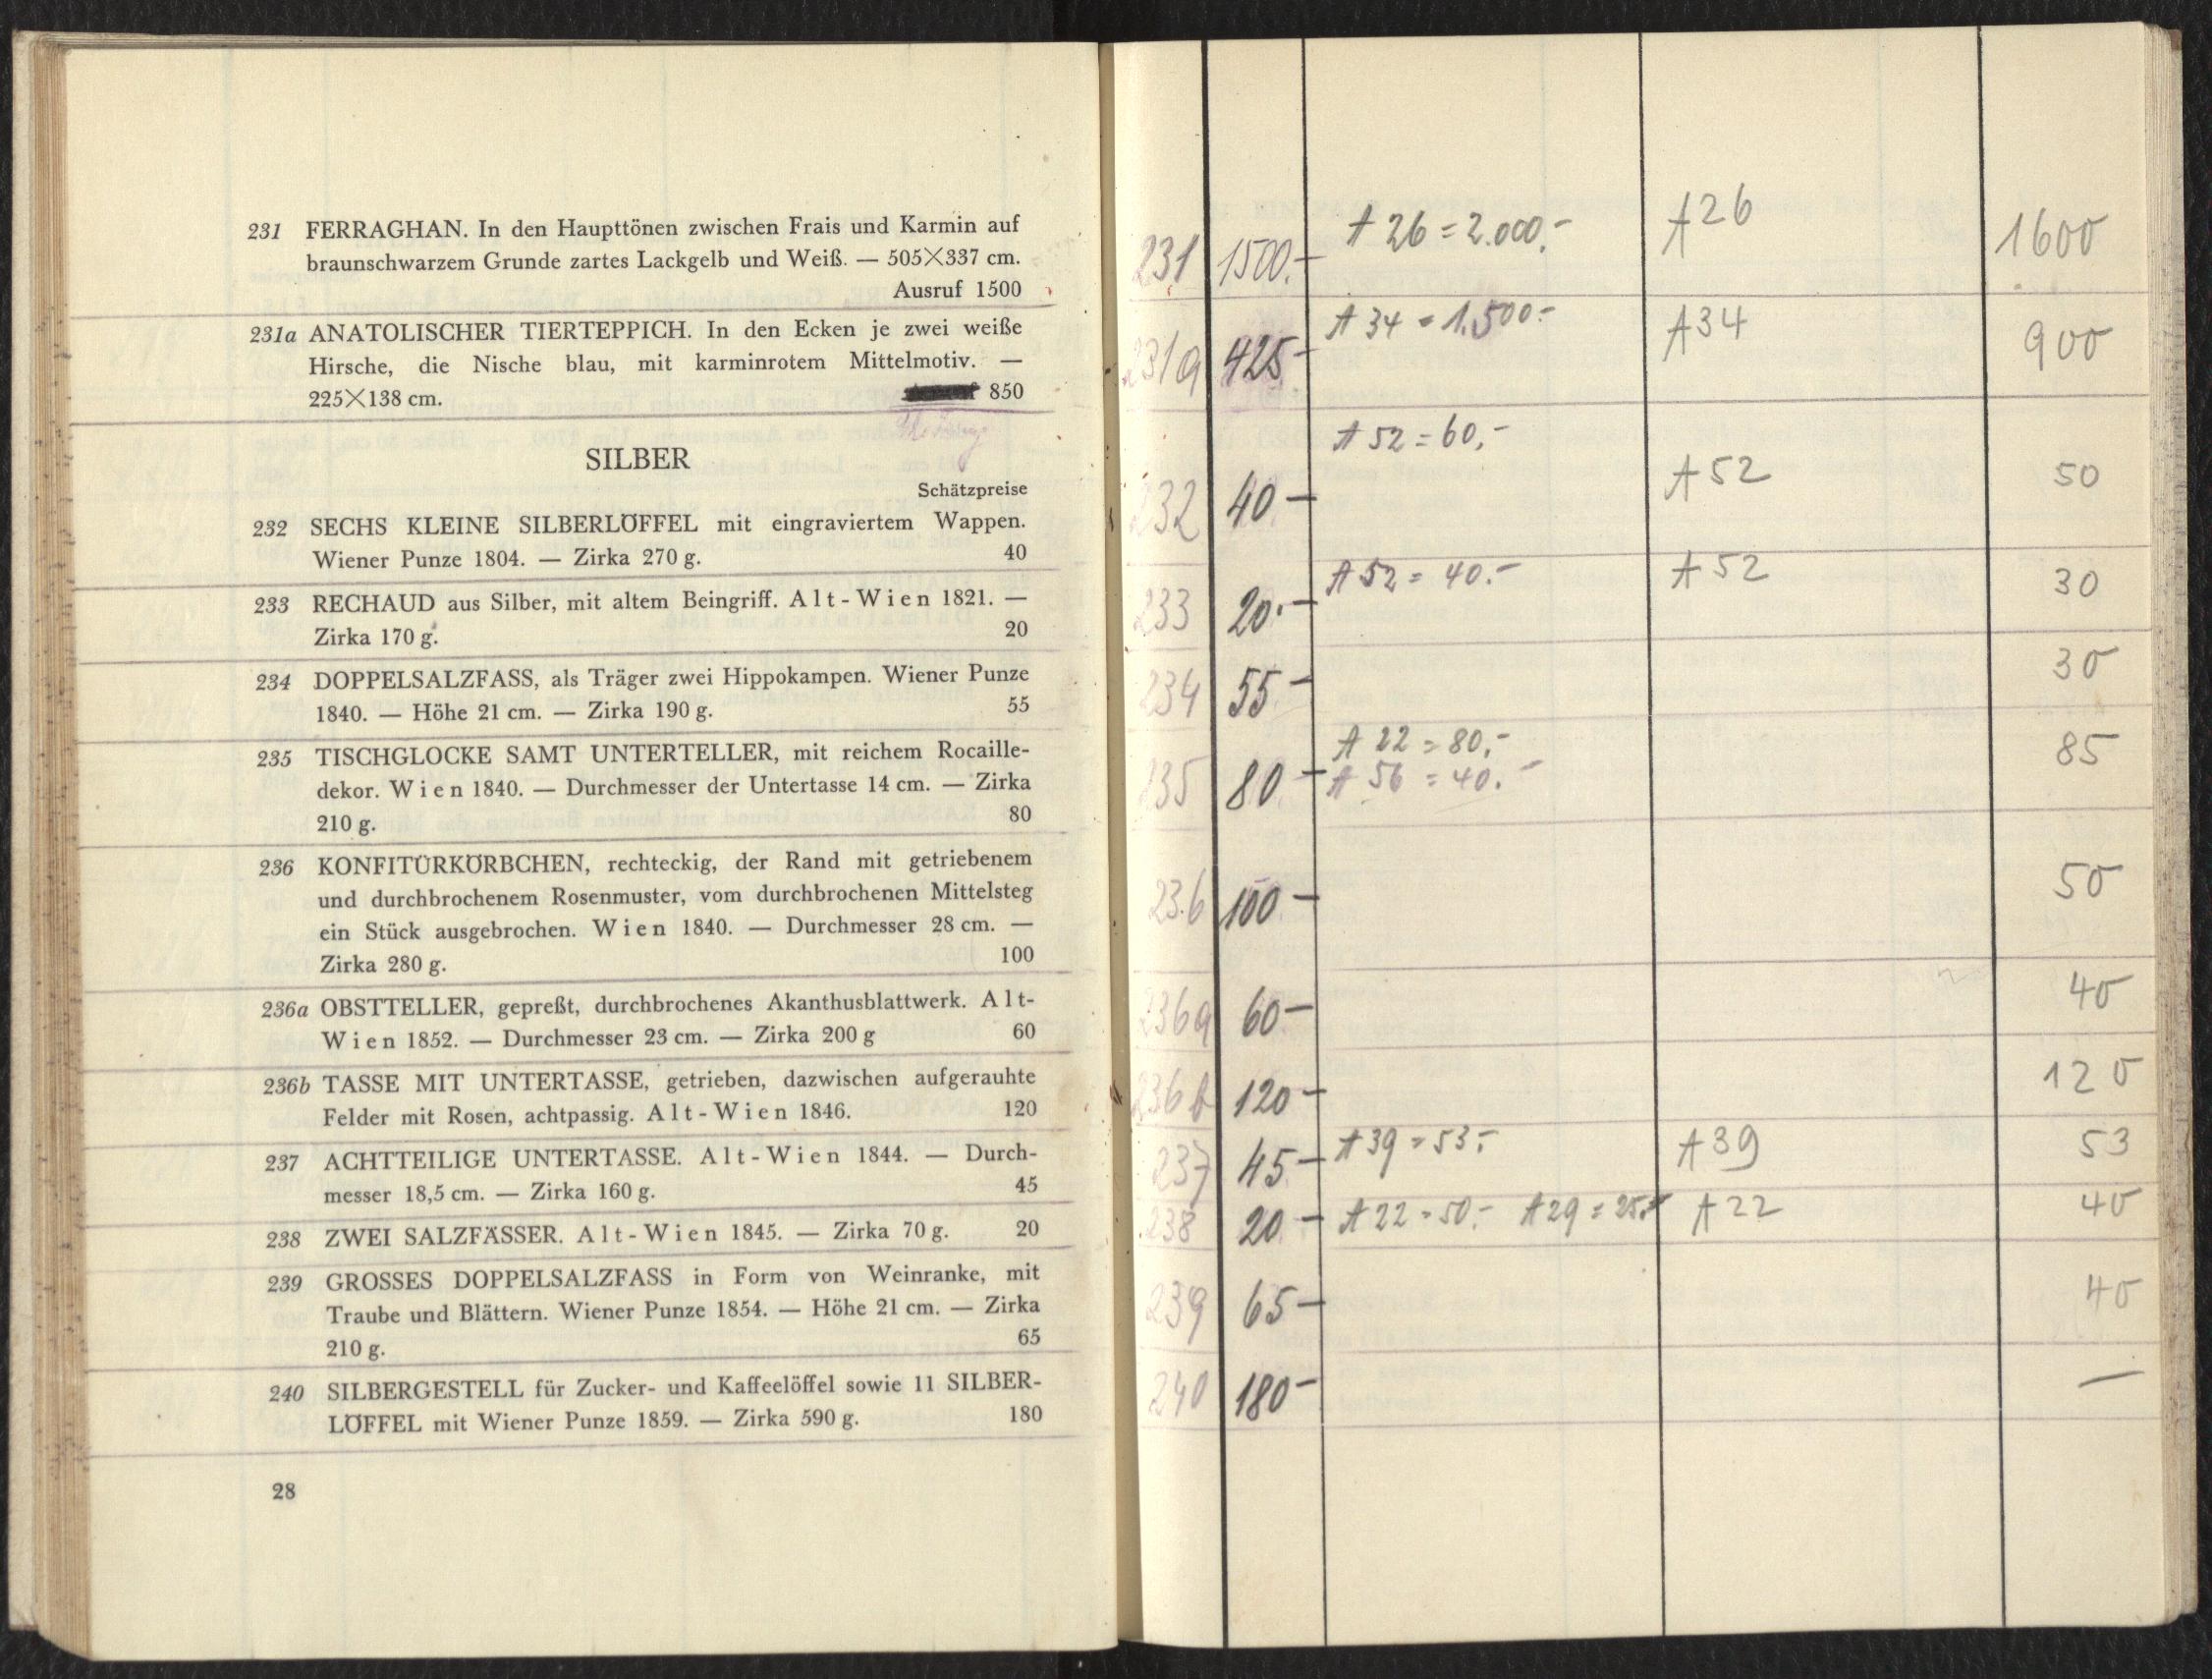 231 FERRAGHAN. In den Haupttönen zwischen Frais und Karmin auf
braunschwarzem Grunde zartes Lackgelb und Weiß. — 505×337 cm.
Ausruf 1500
231a ANATOLISCHER TIERTEPPICH. In den Ecken je zwei weiße
Hirsche, die Nische blau, mit karminrotem Mittelmotiv. —
225×138 cm. 850
SILBER
Schätzpreise
232 SECHS KLEINE SILBERLÖFFEL mit eingraviertem Wappen.
Wiener Punze 1804. — Zirka 270 g. 40
233 RECHAUD aus Silber, mit altem Beingriff. Alt-Wien 1821. —
Zirka 170 g. 20
234 DOPPELSALZFASS, als Träger zwei Hippokampen. Wiener Punze
1840. — Höhe 21 cm. — Zirka 190 g. 55
235 TISCHGLOCKE SAMT UNTERTELLER, mit reichem Rocaille-
dekor. Wien 1840. — Durchmesser der Untertasse 14 cm. — Zirka
210 g. 80
236 KONFITÜRKÖRBCHEN, rechteckig, der Rand mit getriebenem
und durchbrochenem Rosenmuster, vom durchbrochenen Mittelsteg
ein Stück ausgebrochen. Wien 1840. — Durchmesser 28 cm. —
Zirka 280 g. 100
236a OBSTTELLER, gepreßt, durchbrochenes Akanthusblattwerk. Alt-
Wien 1852. — Durchmesser 23 cm. — Zirka 200 g 60
236b TASSE MIT UNTERTASSE, getrieben, dazwischen aufgerauhte
Felder mit Rosen, achtpassig. Alt-Wien 1846. 120
237 ACHTTEILIGE UNTERTASSE. Alt-Wien 1844. — Durch-
messer 18,5 cm. — Zirka 160 g. 45
238 ZWEI SALZFÄSSER. Alt-Wien 1845. — Zirka 70 g. 20
239 GROSSES DOPPELSALZFASS in Form von Weinranke, mit
Traube und Blättern. Wiener Punze 1854. — Höhe 21 cm. — Zirka
210 g. 65
240 SILBERGESTELL für Zucker- und Kaffeelöffel sowie 11 SILBER-
LÖFFEL mit Wiener Punze 1859. — Zirka 590 g. 180
28
231 1500.- A 26 = 2.000.- A 26 1600
231a 425- A 34 = 1.500.- A 34 900
232 40- A 52 = 60,- A 52 50
233 20.- A 52 = 40.- A 52 30
234 55- 30
235 80- A 22 = 80,- 85
A 56 = 40.-
236 100- 50
236a 60- 40
236b 120- 120
237 45- A 39 = 53.- A 39 53
238 20- A 22 = 50.- A 29 = 25.- A 22 40
239 65- 40
240 180- —